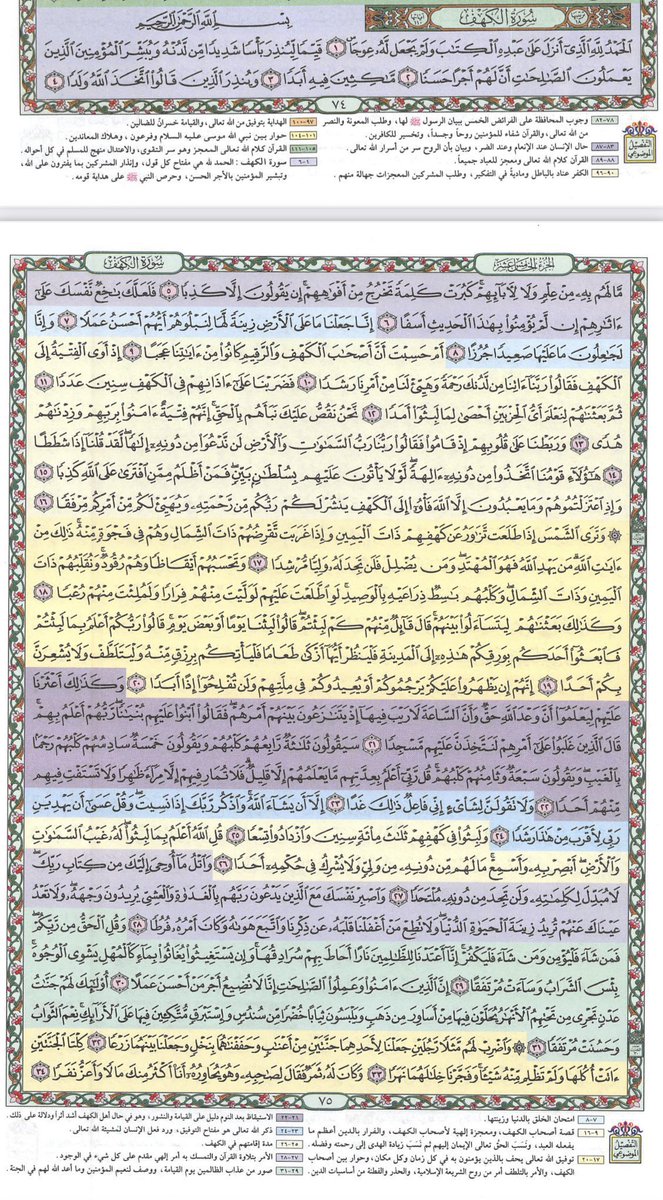 سُورَةُ الكَهْفِ
بِسْمِ اللَّهِ الرَّحْمَٰنِ الرَّحِيمِ
الْحَمْدُ لِلَّهِ الَّذِي أَنزَلَ عَلَىٰ عَبْدِهِ الْكِتَٰبَ وَلَمْ يَجْعَل لَّهُ عِوَجَا ١ قَيِّمًا لِّيُنذِرَ بَأْسًا شَدِيدًا مِّن لَّدُنْهُ وَيُبَشِّرَ الْمُؤْمِنِينَ الَّذِينَ
يَعْمَلُونَ الصَّٰلِحَٰتِ أَنَّ لَهُمْ أَجْرًا حَسَنًا ٢ مَّٰكِثِينَ فِيهِ أَبَدًا ٣ وَيُنذِرَ الَّذِينَ قَالُوا اتَّخَذَ اللَّهُ وَلَدًا ٤
٧٤
التفصيل الموضوعي
٧٨-٨٢ وجوب المحافظة على الفرائض الخمس ببيان الرسول ﷺ لها، وطلب المعونة والنصر
من الله تعالى، والقرآن شفاء للمؤمنين روحاً وجسداً، وتخسير للكافرين.
٨٣-٨٧ حال الإنسان عند الإنعام وعند الضر، وبيان بأن الروح سر من أسرار الله تعالى.
٨٨-٨٩ القرآن كلام الله تعالى ومعجز للعباد جميعاً.
٩٠-٩٦ الكفر عناد بالباطل ومادية في التفكير، وطلب المشركين المعجزات جهالة منهم.
٩٧-١٠٠ الهداية بتوفيق من الله تعالى، والقيامة خسران للضالين.
١٠١-١٠٤ حوار بين نبي الله موسى عليه السلام وفرعون، وهلاك المعاندين.
١٠٥-١١١ القرآن كلام الله تعالى المعجز وهو سر التقوى، والاعتدال منهج للمسلم في كل أحواله.
١-٦ سورة الكهف: الحمد لله هي مفتاح كل قول، وإنذار المشركين بما يفترون على الله،
وتبشير المؤمنين بالأجر الحسن، وحرص النبي ﷺ على هداية قومه.
الجزء الخامس عشر
سُورَةُ الكَهْفِ
مَّا لَهُم بِهِ مِنْ عِلْمٍ وَلَا لِآبَائِهِمْ كَبُرَتْ كَلِمَةً تَخْرُجُ مِنْ أَفْوَٰهِهِمْ إِن يَقُولُونَ إِلَّا كَذِبًا ٥ فَلَعَلَّكَ بَٰخِعٌ نَّفْسَكَ عَلَىٰ
ءَاثَٰرِهِمْ إِن لَّمْ يُؤْمِنُوا بِهَٰذَا الْحَدِيثِ أَسَفًا ٦ إِنَّا جَعَلْنَا مَا عَلَى الْأَرْضِ زِينَةً لَّهَا لِنَبْلُوَهُمْ أَيُّهُمْ أَحْسَنُ عَمَلًا ٧ وَإِنَّا
لَجَٰعِلُونَ مَا عَلَيْهَا صَعِيدًا جُرُزًا ٨ أَمْ حَسِبْتَ أَنَّ أَصْحَٰبَ الْكَهْفِ وَالرَّقِيمِ كَانُوا مِنْ ءَايَٰتِنَا عَجَبًا ٩ إِذْ أَوَى الْفِتْيَةُ إِلَى
الْكَهْفِ فَقَالُوا رَبَّنَا ءَاتِنَا مِن لَّدُنكَ رَحْمَةً وَهَيِّئْ لَنَا مِنْ أَمْرِنَا رَشَدًا ١٠ فَضَرَبْنَا عَلَىٰ ءَاذَانِهِمْ فِي الْكَهْفِ سِنِينَ عَدَدًا ١١
ثُمَّ بَعَثْنَٰهُمْ لِنَعْلَمَ أَيُّ الْحِزْبَيْنِ أَحْصَىٰ لِمَا لَبِثُوا أَمَدًا ١٢ نَّحْنُ نَقُصُّ عَلَيْكَ نَبَأَهُم بِالْحَقِّ إِنَّهُمْ فِتْيَةٌ ءَامَنُوا بِرَبِّهِمْ وَزِدْنَٰهُمْ
هُدًى ١٣ وَرَبَطْنَا عَلَىٰ قُلُوبِهِمْ إِذْ قَامُوا فَقَالُوا رَبُّنَا رَبُّ السَّمَٰوَٰتِ وَالْأَرْضِ لَن نَّدْعُوَا مِن دُونِهِ إِلَٰهًا لَّقَدْ قُلْنَا إِذًا شَطَطًا
١٤ هَٰؤُلَاءِ قَوْمُنَا اتَّخَذُوا مِن دُونِهِ ءَالِهَةً لَّوْلَا يَأْتُونَ عَلَيْهِم بِسُلْطَٰنٍ بَيِّنٍ فَمَنْ أَظْلَمُ مِمَّنِ افْتَرَىٰ عَلَى اللَّهِ كَذِبًا ١٥
وَإِذِ اعْتَزَلْتُمُوهُمْ وَمَا يَعْبُدُونَ إِلَّا اللَّهَ فَأْوُوا إِلَى الْكَهْفِ يَنشُرْ لَكُمْ رَبُّكُم مِّن رَّحْمَتِهِ وَيُهَيِّئْ لَكُم مِّنْ أَمْرِكُم مِّرْفَقًا ١٦
۞ وَتَرَى الشَّمْسَ إِذَا طَلَعَت تَّزَٰوَرُ عَن كَهْفِهِمْ ذَاتَ الْيَمِينِ وَإِذَا غَرَبَت تَّقْرِضُهُمْ ذَاتَ الشِّمَالِ وَهُمْ فِي فَجْوَةٍ مِّنْهُ ذَٰلِكَ مِنْ
ءَايَٰتِ اللَّهِ مَن يَهْدِ اللَّهُ فَهُوَ الْمُهْتَدِ وَمَن يُضْلِلْ فَلَن تَجِدَ لَهُ وَلِيًّا مُّرْشِدًا ١٧ وَتَحْسَبُهُمْ أَيْقَاظًا وَهُمْ رُقُودٌ وَنُقَلِّبُهُمْ ذَاتَ
الْيَمِينِ وَذَاتَ الشِّمَالِ وَكَلْبُهُم بَٰسِطٌ ذِرَاعَيْهِ بِالْوَصِيدِ لَوِ اطَّلَعْتَ عَلَيْهِمْ لَوَلَّيْتَ مِنْهُمْ فِرَارًا وَلَمُلِئْتَ مِنْهُمْ رُعْبًا ١٨
وَكَذَٰلِكَ بَعَثْنَٰهُمْ لِيَتَسَاءَلُوا بَيْنَهُمْ قَالَ قَائِلٌ مِّنْهُمْ كَمْ لَبِثْتُمْ قَالُوا لَبِثْنَا يَوْمًا أَوْ بَعْضَ يَوْمٍ قَالُوا رَبُّكُمْ أَعْلَمُ بِمَا لَبِثْتُمْ
فَابْعَثُوا أَحَدَكُم بِوَرِقِكُمْ هَٰذِهِ إِلَى الْمَدِينَةِ فَلْيَنظُرْ أَيُّهَا أَزْكَىٰ طَعَامًا فَلْيَأْتِكُم بِرِزْقٍ مِّنْهُ وَلْيَتَلَطَّفْ وَلَا يُشْعِرَنَّ
بِكُمْ أَحَدًا ١٩ إِنَّهُمْ إِن يَظْهَرُوا عَلَيْكُمْ يَرْجُمُوكُمْ أَوْ يُعِيدُوكُمْ فِي مِلَّتِهِمْ وَلَن تُفْلِحُوا إِذًا أَبَدًا ٢٠ وَكَذَٰلِكَ أَعْثَرْنَا
عَلَيْهِمْ لِيَعْلَمُوا أَنَّ وَعْدَ اللَّهِ حَقٌّ وَأَنَّ السَّاعَةَ لَا رَيْبَ فِيهَا إِذْ يَتَنَٰزَعُونَ بَيْنَهُمْ أَمْرَهُمْ فَقَالُوا ابْنُوا عَلَيْهِم بُنْيَٰنًا رَّبُّهُمْ أَعْلَمُ بِهِمْ
قَالَ الَّذِينَ غَلَبُوا عَلَىٰ أَمْرِهِمْ لَنَتَّخِذَنَّ عَلَيْهِم مَّسْجِدًا ٢١ سَيَقُولُونَ ثَلَٰثَةٌ رَّابِعُهُمْ كَلْبُهُمْ وَيَقُولُونَ خَمْسَةٌ سَادِسُهُمْ كَلْبُهُمْ رَجْمًا
بِالْغَيْبِ وَيَقُولُونَ سَبْعَةٌ وَثَامِنُهُمْ كَلْبُهُمْ قُل رَّبِّي أَعْلَمُ بِعِدَّتِهِم مَّا يَعْلَمُهُمْ إِلَّا قَلِيلٌ فَلَا تُمَارِ فِيهِمْ إِلَّا مِرَاءً ظَٰهِرًا وَلَا تَسْتَفْتِ فِيهِم
مِّنْهُمْ أَحَدًا ٢٢ وَلَا تَقُولَنَّ لِشَايْءٍ إِنِّي فَاعِلٌ ذَٰلِكَ غَدًا ٢٣ إِلَّا أَن يَشَاءَ اللَّهُ وَاذْكُر رَّبَّكَ إِذَا نَسِيتَ وَقُلْ عَسَىٰ أَن يَهْدِيَنِ
رَبِّي لِأَقْرَبَ مِنْ هَٰذَا رَشَدًا ٢٤ وَلَبِثُوا فِي كَهْفِهِمْ ثَلَٰثَ مِائَةٍ سِنِينَ وَازْدَادُوا تِسْعًا ٢٥ قُلِ اللَّهُ أَعْلَمُ بِمَا لَبِثُوا لَهُ غَيْبُ السَّمَٰوَٰتِ
وَالْأَرْضِ أَبْصِرْ بِهِ وَأَسْمِعْ مَا لَهُم مِّن دُونِهِ مِن وَلِيٍّ وَلَا يُشْرِكُ فِي حُكْمِهِ أَحَدًا ٢٦ وَاتْلُ مَا أُوحِيَ إِلَيْكَ مِن كِتَابِ رَبِّكَ
لَا مُبَدِّلَ لِكَلِمَٰتِهِ وَلَن تَجِدَ مِن دُونِهِ مُلْتَحَدًا ٢٧ وَاصْبِرْ نَفْسَكَ مَعَ الَّذِينَ يَدْعُونَ رَبَّهُم بِالْغَدَوٰةِ وَالْعَشِيِّ يُرِيدُونَ وَجْهَهُ وَلَا تَعْدُ
عَيْنَاكَ عَنْهُمْ تُرِيدُ زِينَةَ الْحَيَوٰةِ الدُّنْيَا وَلَا تُطِعْ مَنْ أَغْفَلْنَا قَلْبَهُ عَن ذِكْرِنَا وَاتَّبَعَ هَوَىٰهُ وَكَانَ أَمْرُهُ فُرُطًا ٢٨ وَقُلِ الْحَقُّ مِن رَّبِّكُمْ
فَمَن شَاءَ فَلْيُؤْمِن وَمَن شَاءَ فَلْيَكْفُرْ إِنَّا أَعْتَدْنَا لِلظَّٰلِمِينَ نَارًا أَحَاطَ بِهِمْ سُرَادِقُهَا وَإِن يَسْتَغِيثُوا يُغَاثُوا بِمَاءٍ كَالْمُهْلِ يَشْوِي الْوُجُوهَ
بِئْسَ الشَّرَابُ وَسَاءَتْ مُرْتَفَقًا ٢٩ إِنَّ الَّذِينَ ءَامَنُوا وَعَمِلُوا الصَّٰلِحَٰتِ إِنَّا لَا نُضِيعُ أَجْرَ مَنْ أَحْسَنَ عَمَلًا ٣٠ أُولَٰئِكَ لَهُمْ جَنَّٰتُ
عَدْنٍ تَجْرِي مِن تَحْتِهِمُ الْأَنْهَٰرُ يُحَلَّوْنَ فِيهَا مِنْ أَسَاوِرَ مِن ذَهَبٍ وَيَلْبَسُونَ ثِيَابًا خُضْرًا مِّن سُندُسٍ وَإِسْتَبْرَقٍ مُّتَّكِئِينَ فِيهَا عَلَى الْأَرَائِكِ نِعْمَ الثَّوَابُ
وَحَسُنَتْ مُرْتَفَقًا ٣١ ۞ وَاضْرِبْ لَهُم مَّثَلًا رَّجُلَيْنِ جَعَلْنَا لِأَحَدِهِمَا جَنَّتَيْنِ مِنْ أَعْنَٰبٍ وَحَفَفْنَٰهُمَا بِنَخْلٍ وَجَعَلْنَا بَيْنَهُمَا زَرْعًا ٣٢ كِلْتَا الْجَنَّتَيْنِ
ءَاتَتْ أُكُلَهَا وَلَمْ تَظْلِم مِّنْهُ شَيْئًا وَفَجَّرْنَا خِلَٰلَهُمَا نَهَرًا ٣٣ وَكَانَ لَهُ ثَمَرٌ فَقَالَ لِصَٰحِبِهِ وَهُوَ يُحَاوِرُهُ أَنَا أَكْثَرُ مِنكَ مَالًا وَأَعَزُّ نَفَرًا ٣٤
٧٥
التفصيل الموضوعي
٧-٨ امتحان الخلق بالدنيا وزينتها.
٩-١٦ قصة أصحاب الكهف، ومعجزة إلهية لأصحاب الكهف، والفرار بالدين أعظم ما
يفعله العبد، ونَسَب الحق تعالى الإيمان إليهم ثم نَسَب زيادة الهدى إلى رحمته وفضله.
١٧-٢٠ توفيق الله تعالى يحف بالذين يؤمنون به في كل زمان وكل مكان، وحوار بين أصحاب
الكهف، والأمر بالتلطف أمر من روح الشريعة الإسلامية، والحذر والفطنة من أساسيات الدين.
٢١-٢٢ الاستيقاظ بعد النوم دليل على القيامة والنشور، وهو في حال أهل الكهف أشد أثراً ودلالة على ذلك.
٢٣-٢٤ ذكر الله تعالى هو مفتاح التوفيق، ورد فعل الإنسان لمشيئة الله تعالى.
٢٥-٢٦ مدة إقامتهم في الكهف.
٢٧-٢٨ الأمر بتلاوة القرآن والتمسك به أمر إلهي مقدم على كل شيء في الوجود.
٢٩-٣١ صور من عذاب الظالمين يوم القيامة، ووصف لنعيم المؤمنين وما أعد الله لهم في الجنة.